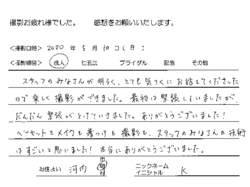 撮影お疲れ様でした。 感想をお願いいたします。
<撮影日時> 2020年 5月 10日( 日 )
<撮影種別> 成人 七五三 ブライダル 記念 その他
スタッフのみなさんが明るく、とても気さくにお話してくださった
ので楽しく撮影ができました。最初は緊張していましたが
だんだん緊張がとけていきました。ありがとうございました!
ヘアセットとメイクも着つけも撮影も、スタッフのみなさんの技術
はすごいと思いました!本当にありがとうございました。
お住まい 河内 ニックネーム
イニシャル K